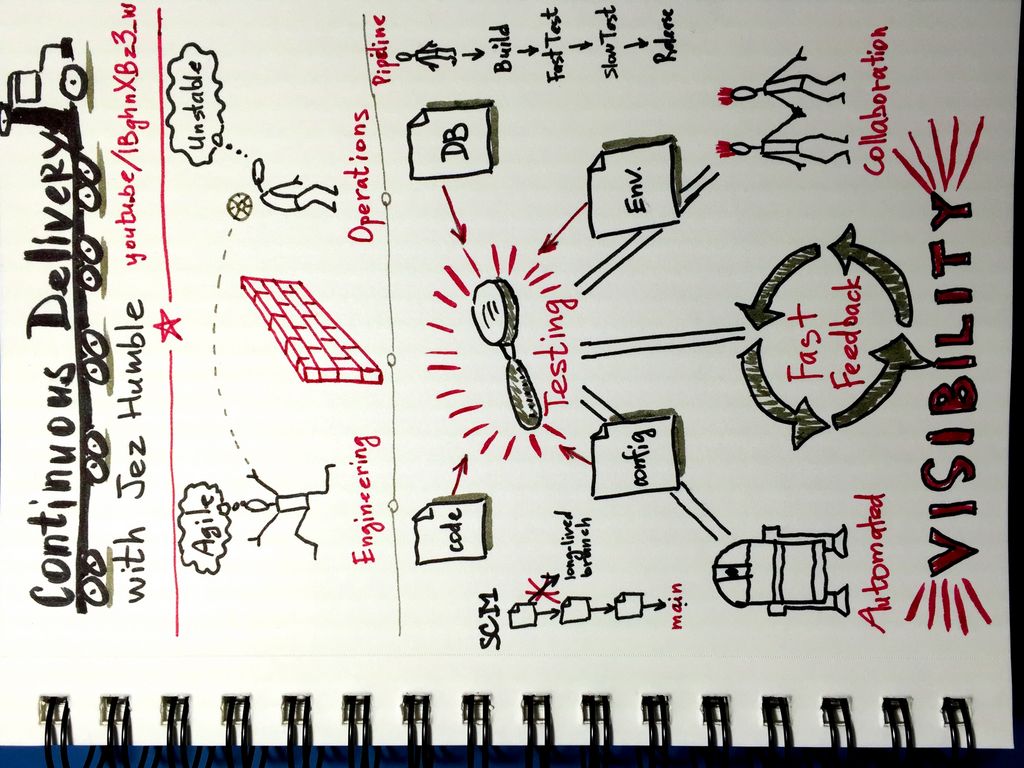 Continuous Delivery
with Jez Humble
youtu.be/1BghnXBz3_w
Agile
Unstable
Engineering
Operations
Pipeline
Build
Fast Test
Slow Test
Release
SCM
long-lived
branch
main
code
DB
config
Env.
Testing
Fast
Feedback
Automated
Collaboration
VISIBILITY